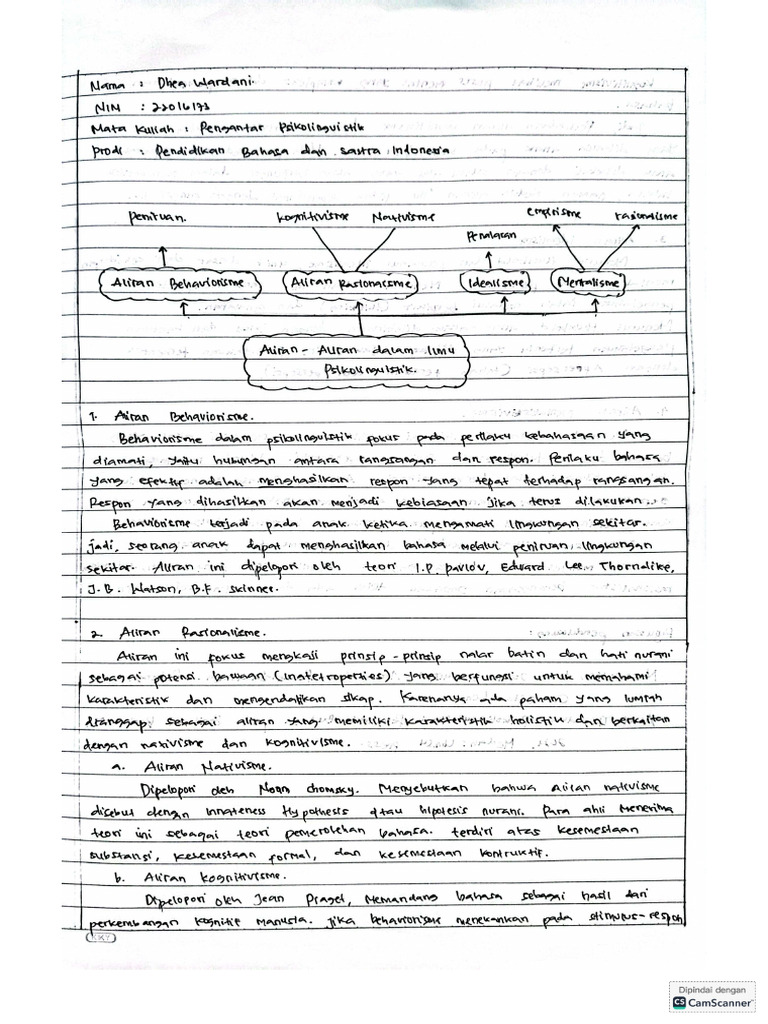 Nama : Dhea Wardani
NIM : 22016173
Mata Kuliah : Pengantar Psikolinguistik
Prodi : Pendidikan Bahasa dan Sastra Indonesia
Peniruan. Kognitivisme Nativisme Penalaran empirisme rasionalisme
Aliran Behaviorisme Aliran Rasionalisme Idealisme Mentalisme
Aliran - Aliran dalam Ilmu
Psikolinguistik.
1. Aliran Behaviorisme.
Behaviorisme dalam psikolinguistik fokus pada perilaku kebahasaan yang
diamati, yaitu hubungan antara rangsangan dan respon. Perilaku bahasa
yang efektif adalah menghasilkan respon yang tepat terhadap rangsangan.
Respon yang dihasilkan akan menjadi kebiasaan jika terus dilakukan.
Behaviorisme terjadi pada anak ketika mengamati lingkungan sekitar.
jadi, seorang anak dapat menghasilkan bahasa melalui peniruan lingkungan
sekitar. Aliran ini dipelopori oleh teori I.P. pavlov, Edward Lee Thorndike,
J.B. Watson, B.F. skinner.
2. Aliran Rasionalisme.
Aliran ini fokus mengkaji prinsip-prinsip nalar batin dan hati nurani
sebagai potensi bawaan (innateproperties) yang berfungsi untuk memahami
karakteristik dan mengendalikan sikap. Karenanya ada paham yang lumrah
dianggap sebagai aliran yang memiliki karakteristik holistik dan berkaitan
dengan nativisme dan kognitivisme.
a. Aliran Nativisme.
Dipelopori oleh Noan chomsky. Menyebutkan bahwa Aliran nativisme
disebut dengan Innateness Hypothesis atau hipotesis nurani. Para ahli menerima
teori ini sebagai teori pemerolehan bahasa. terdiri atas kesemestaan
substansi, kesemestaan formal, dan kesemestaan kontruktif.
b. Aliran kognitivisme.
Dipelopori oleh Jean Piaget, Memandang bahasa sebagai hasil dari
perkembangan kognitif manusia. Jika behaviorisme menekankan pada stimulus-respon
KKY
Dipindai dengan
CS CamScanner